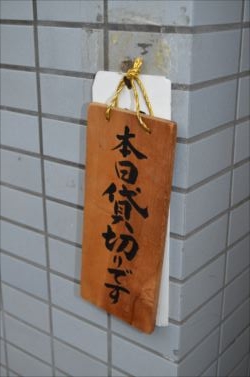 本日貸切りです